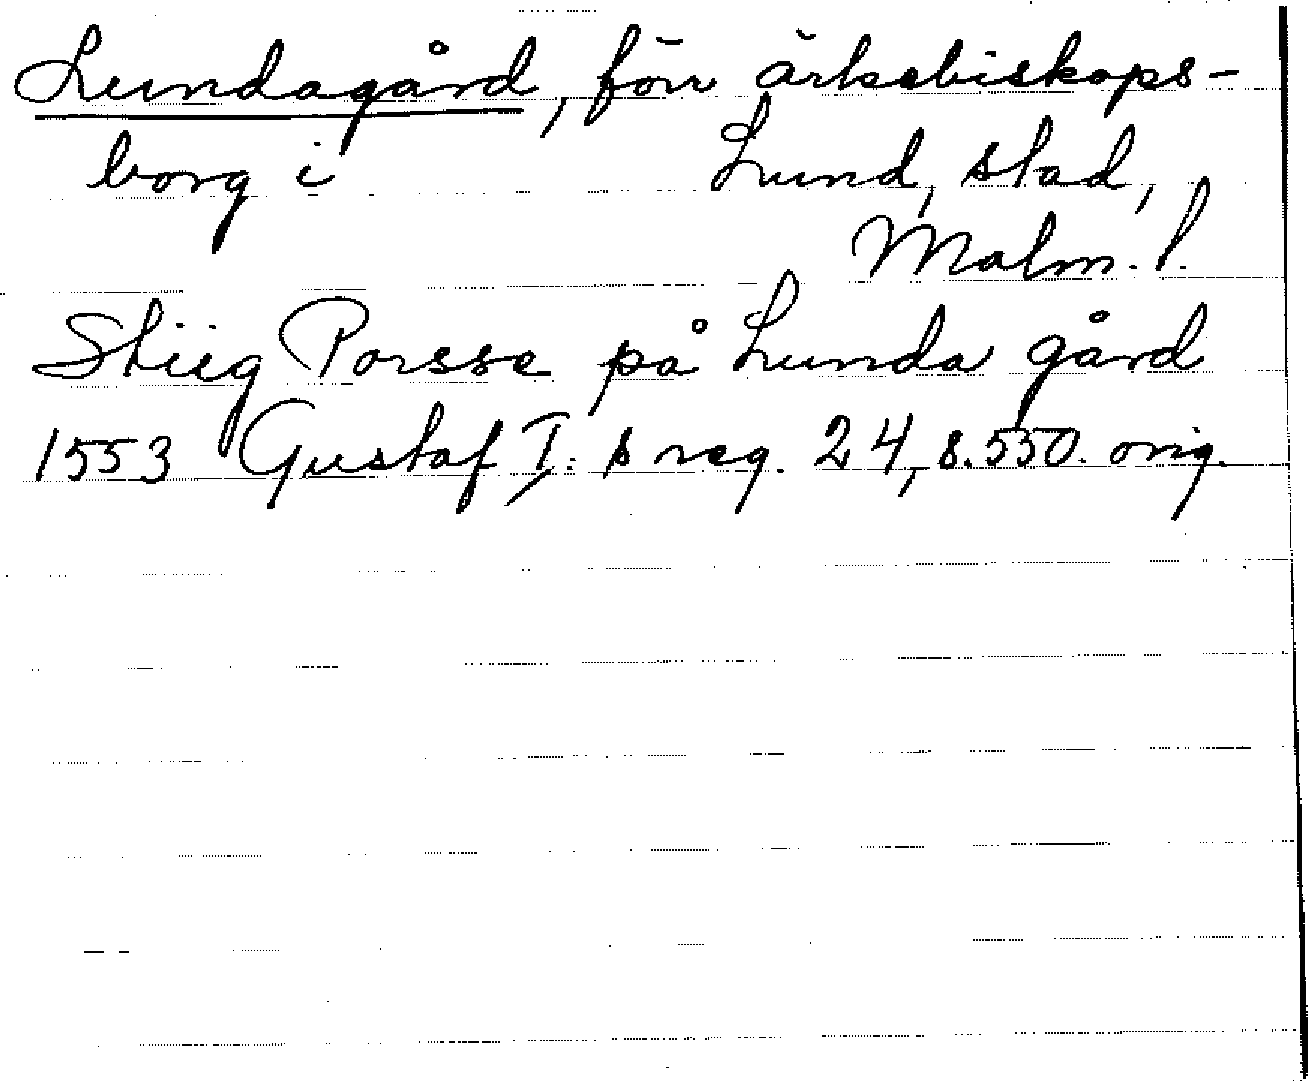 Lundagård, förr ärkebiskops-
borg i Lund, stad,
Malm. l.
Stiig Porsse på Lunda gård
1553 Gustaf I:s reg. 24, s. 550. orig.